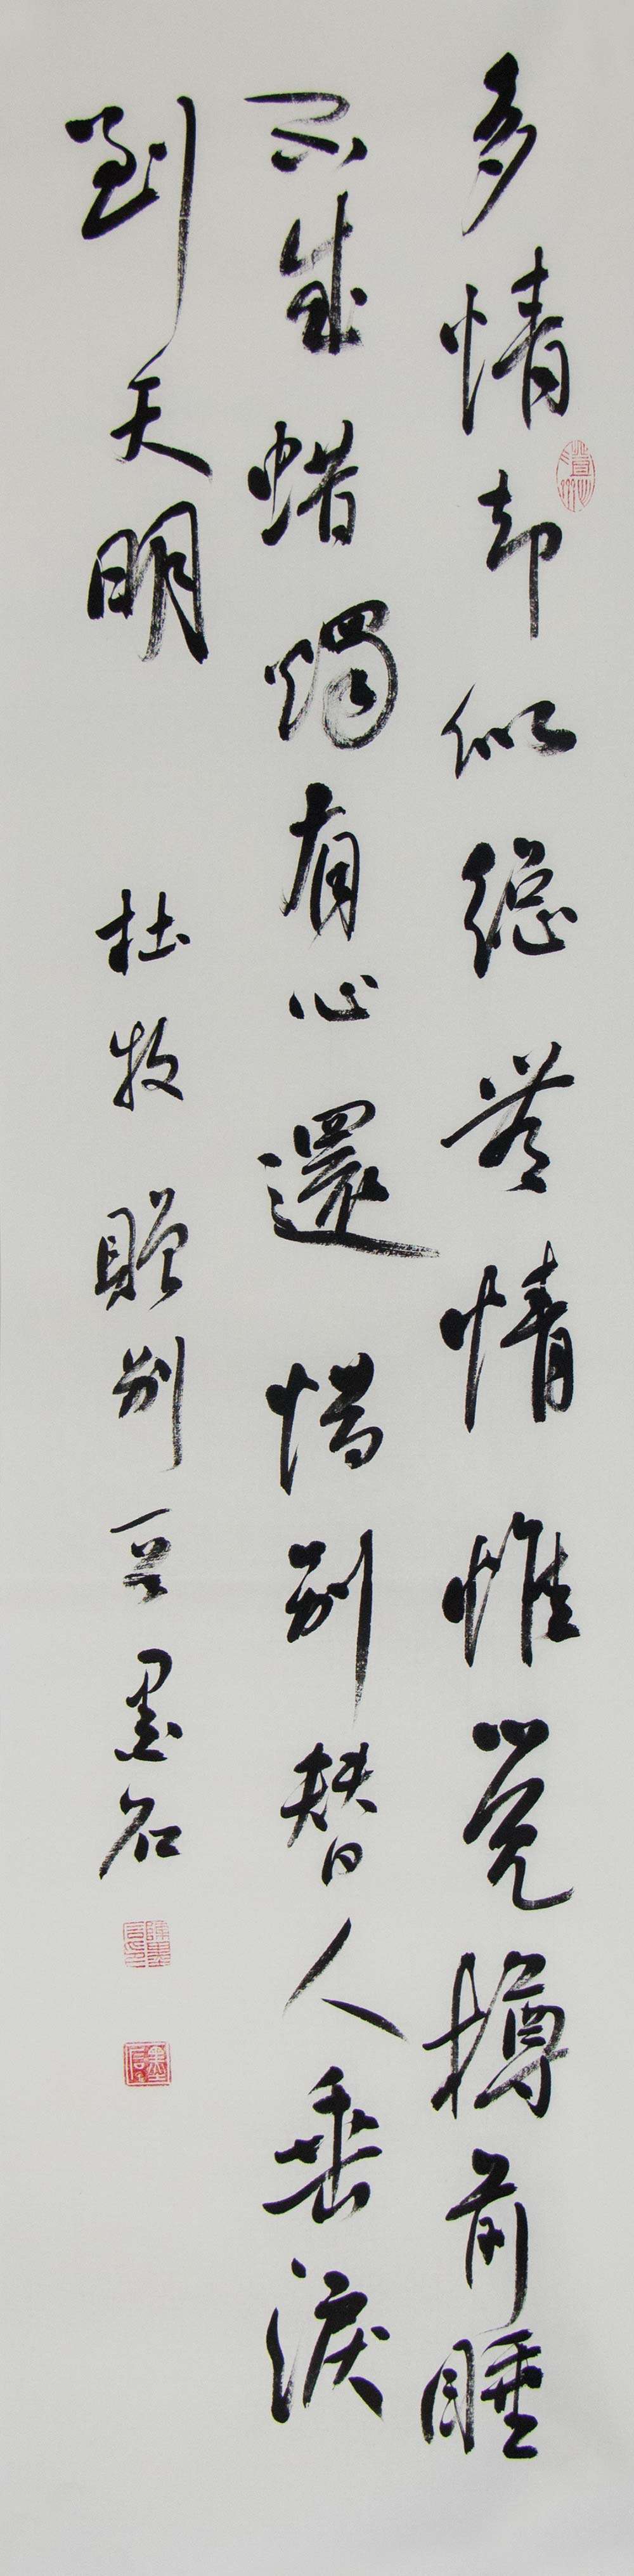 多情却似總無情惟覺樽前睡
不成蜡燭有心還惜別替人垂淚
到天明
杜牧 贈別一首 墨石